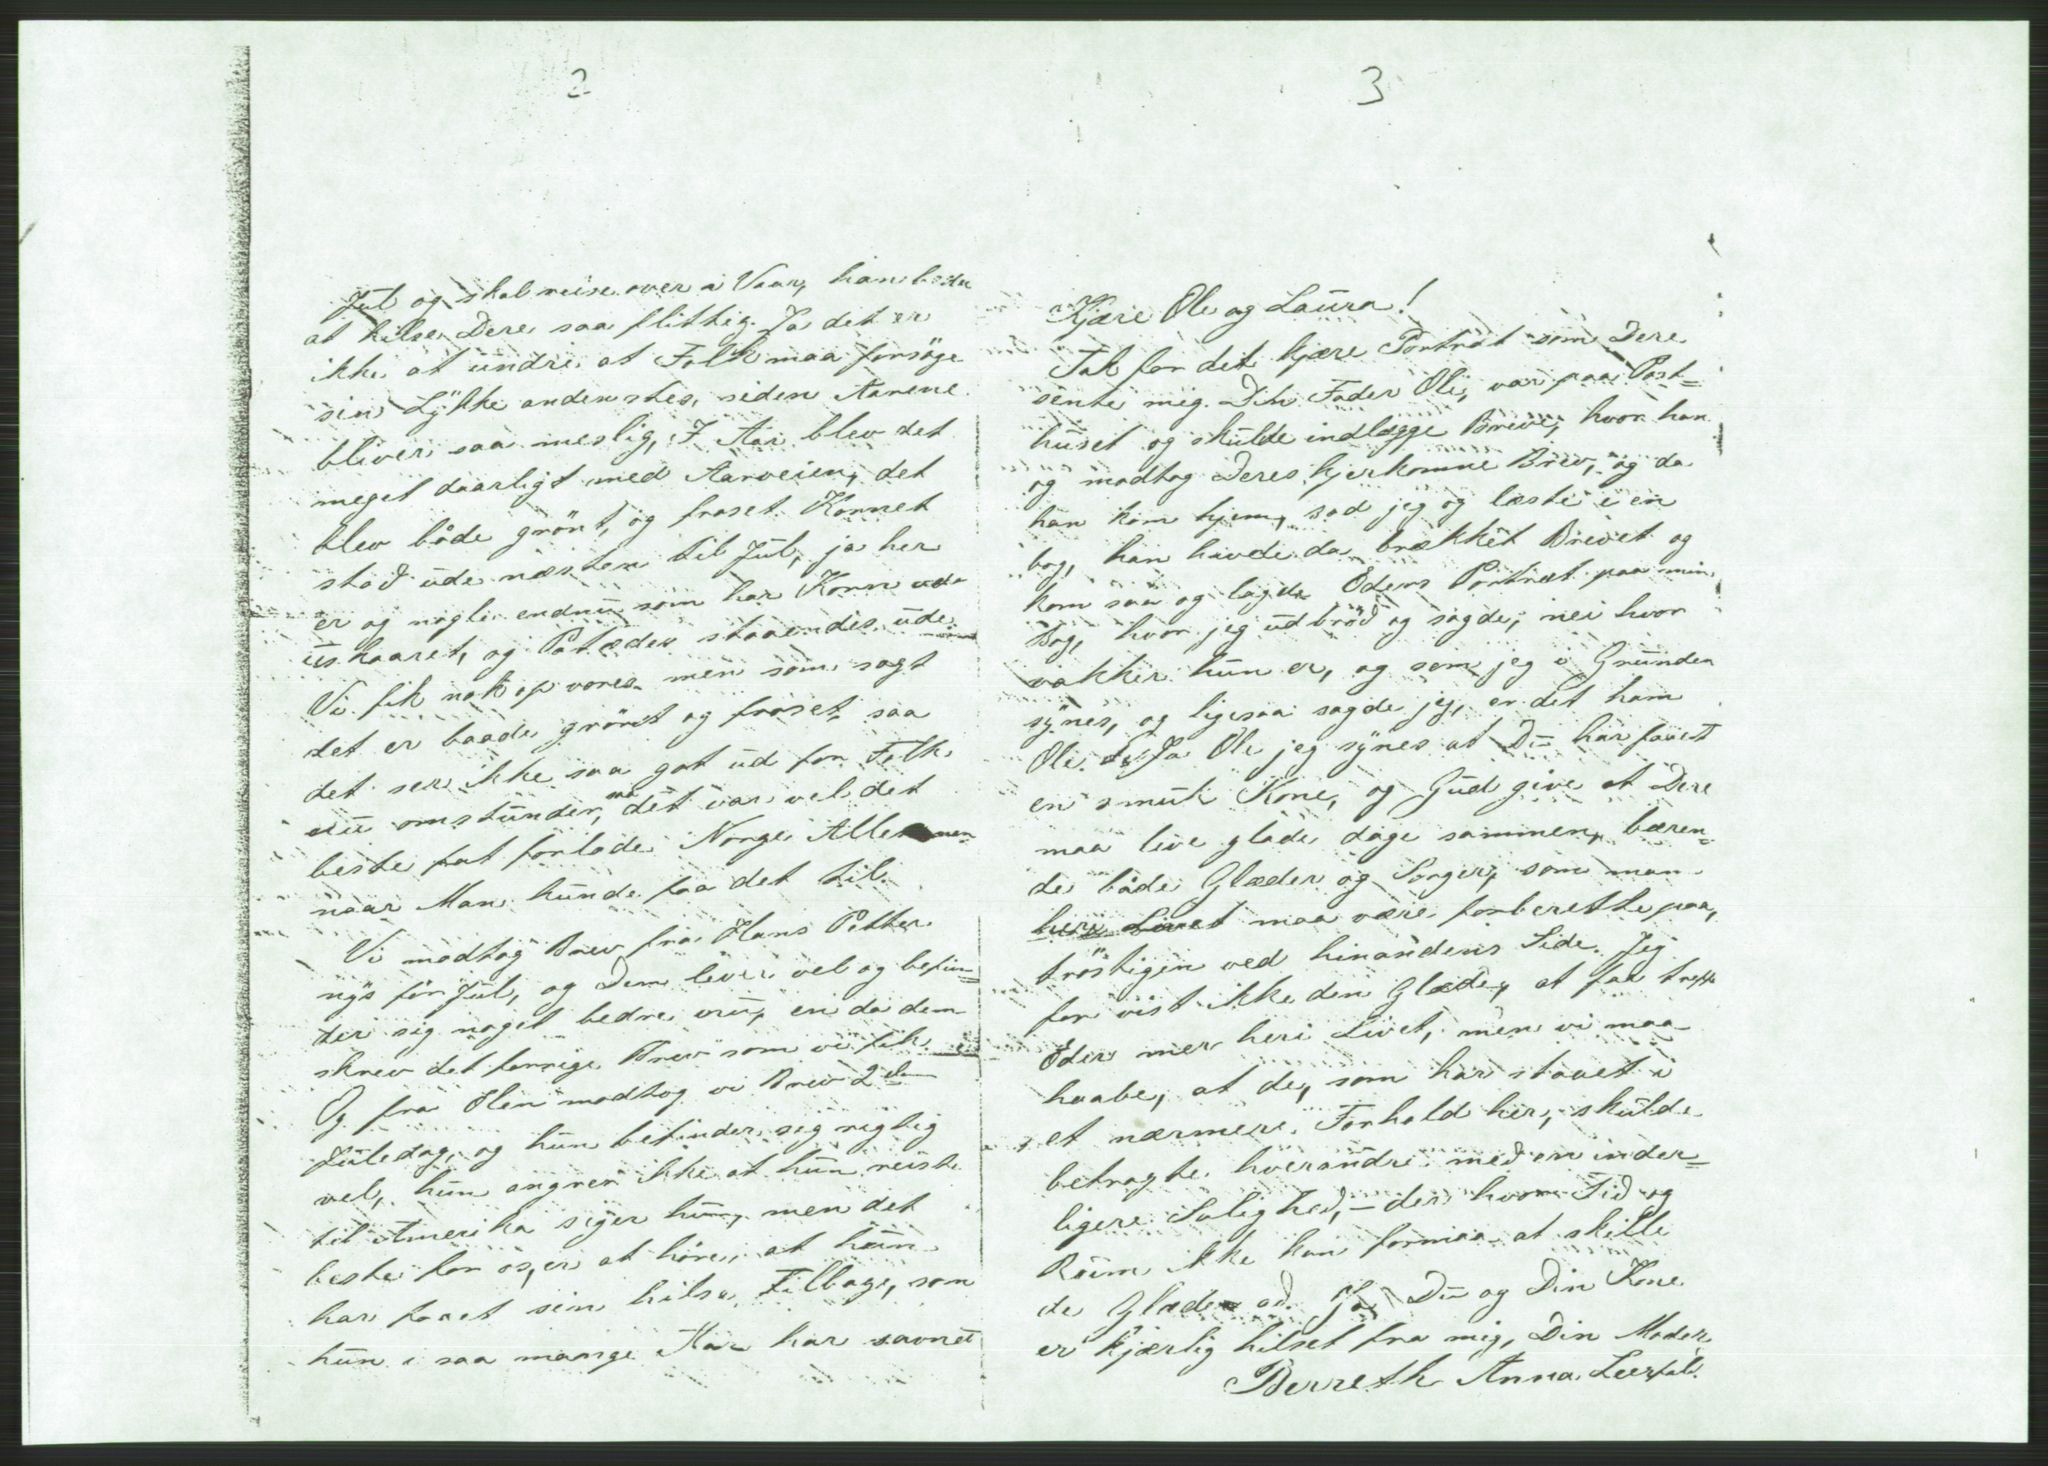 2
Jul og skal reise over i Vaar, han beder
at hilse Dere saa flittig. Ja det er
ikke at undre at Folk maa forsöge
sin Lÿkke andenstes, siden Aarene
bliver saa meslig, I Aar blev det
meget daarligt med Aarveien, det
blev både grönt, og froset Kornet
stod ude næsten til Jul, ja her
er og nogle endnu som har Korn ude
uskaaret, og Poteder staaendes ude.
Vi fik nok op vores men som sagt
det er baade grönt og froset, saa
det ser ikke saa got ud for Folk
nu omstunder, saa det var vel det
beste at forlade Norge Allemen-
naar Man kunde faa det til.
Vi modtog Brev fra Hans Petter
nÿs för Jul, og Dem lever vel og befin-
der sig noget bedre nu, en da dem
skrev det forrige Brev som vi fik.
Og fra Elen modtog vi Brev 2den
Juledag, og hun befinder sig rigtig
vel, hun angrer ikke at hun reiste
til Amerika siger hun, men det
beste for os, er at höre, at hun
har faaet sin helse Tilbage, som
hun i saa mange Aar har savnet
3
Kjære Ole og Laura!
Tak for det kjære Portræt som Dere
sente mig. Din Fader Ole, var paa Post-
huset og skulde indlægge Breve, hvor han
og modtog Deres kjerkomne Brev, og da
han kom hjem, sad jeg og læste i en
bog, han havde da brækket Brevet og
kom saa og lagde Eders Portræt paa min
Bog, hvor jeg udbröd og sagde; nei hvor
vakker hun er, og som jeg i Grunden
sÿnes, og ligesaa sagde jeg, er det ham
Ole. Ja Ole jeg sÿnes at Du har faaet
en smuk Kone, og Gud give at Dere
maa leve glade dage sammen, bæren-
de både Glæder og Sorger, som man
here Livet maa være forberette paa,
tröstigen ved hinandens Side. Jeg
for vist ikke den Glæde, at faa treffe
Eder mer heri Livet, men vi maa
haabe, at de, som har staaet i
et nærmere Forhold her, skulde
betragte hverandre med en inder-
ligere Salighed, – der hvor Tid og
Rum ikke kan formaa at skille
de Glæder ad. Ja Du og Din Kone
er kjærlig hilset fra mig, Din Moder
Berreth Anna Leerfald.